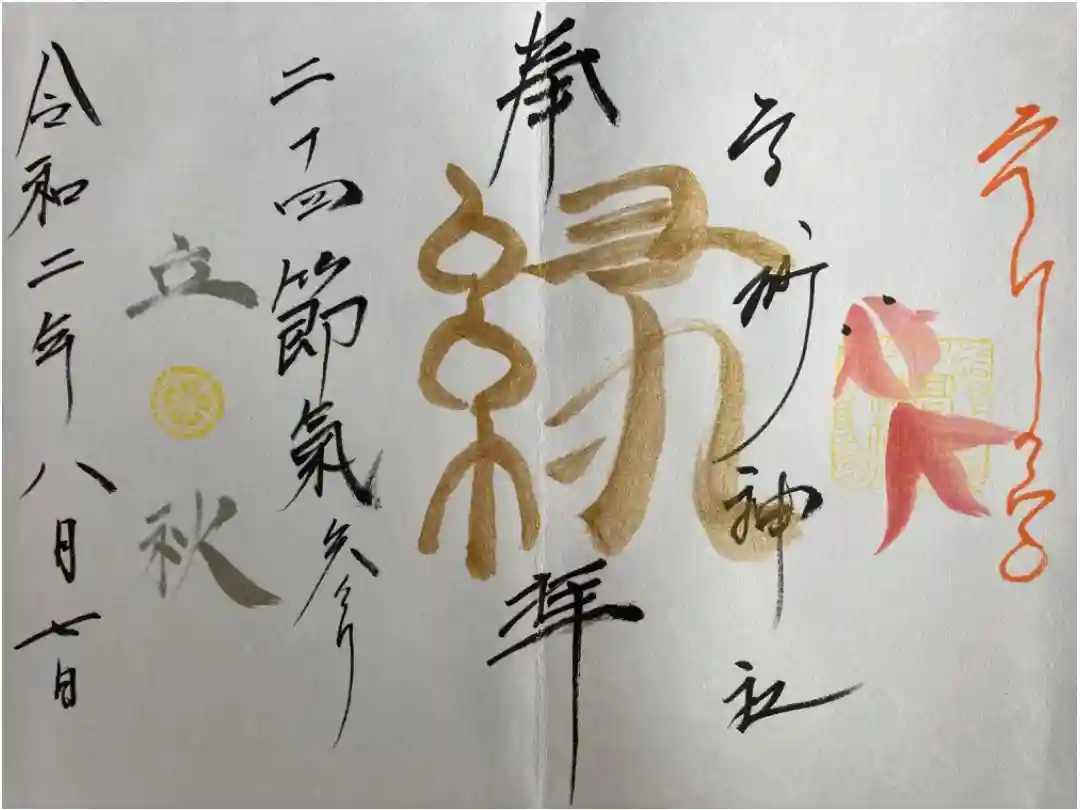 神社
奉拝
縁
二十四節氣参り
立秋
令和二年八月七日